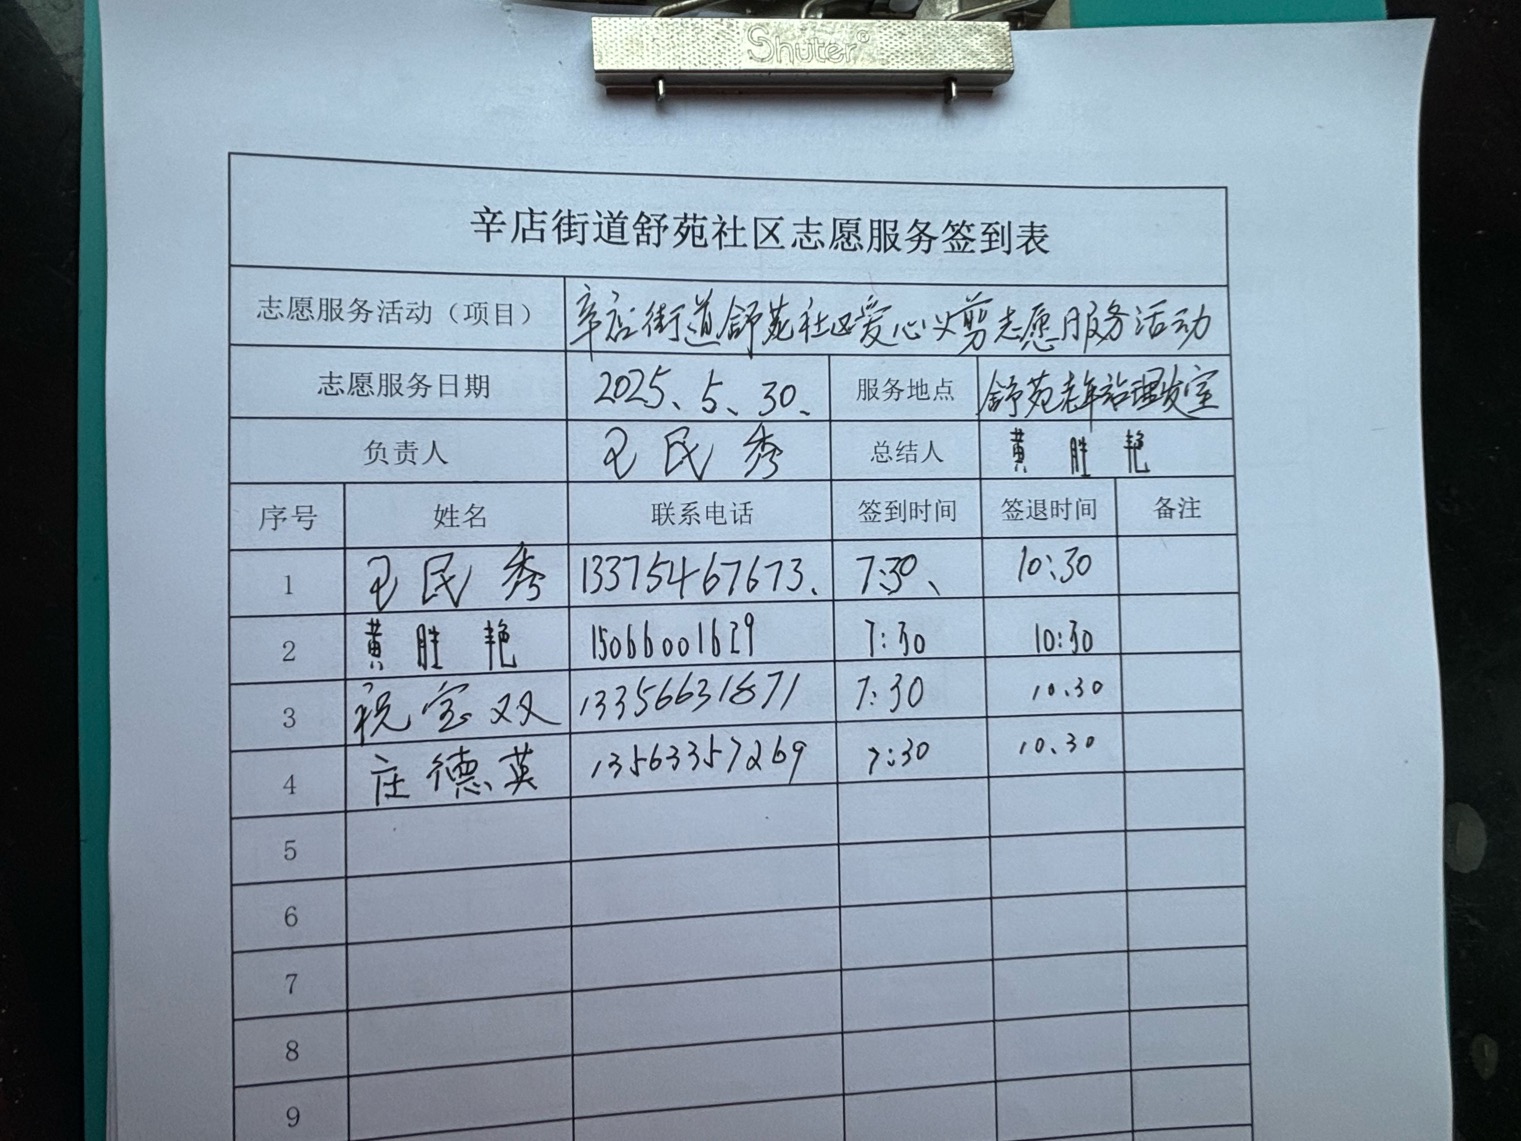 Shuter
辛店街道舒苑社区志愿服务签到表
志愿服务活动（项目） 辛店街道舒苑社区爱心义剪志愿服务活动
志愿服务日期 2025、5、30、 服务地点 舒苑老年站理发室
负责人 王民秀 总结人 黄胜艳
序号 姓名 联系电话 签到时间 签退时间 备注
1 王民秀 13375467673、 7:30、 10:30
2 黄胜艳 15066001629 7:30 10:30
3 祝宝双 13356631871 7:30 10.30
4 庄德英 13563357269 7:30 10.30
5
6
7
8
9